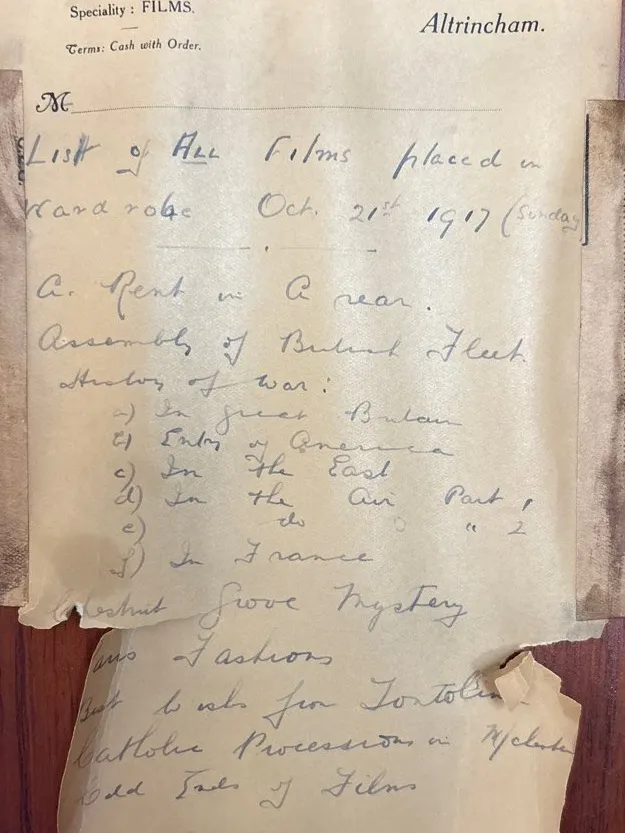 Speciality: FILMS.
Altrincham.
Terms: Cash with Order.
M
List of ALL Films placed in
Wardrobe Oct. 21st 1917 (Sunday
A. Rent in A rear.
Assembly of British Fleet.
History of War:
a) In Great Britain
b) Entry of America
c) In the East
d) In the Air Part 1
e) do " 2
f) In France
Chestnut Grove Mystery
Fashions
Best wishes from Tontolini
Catholic Processions in M/chester
Odd Ends of Films